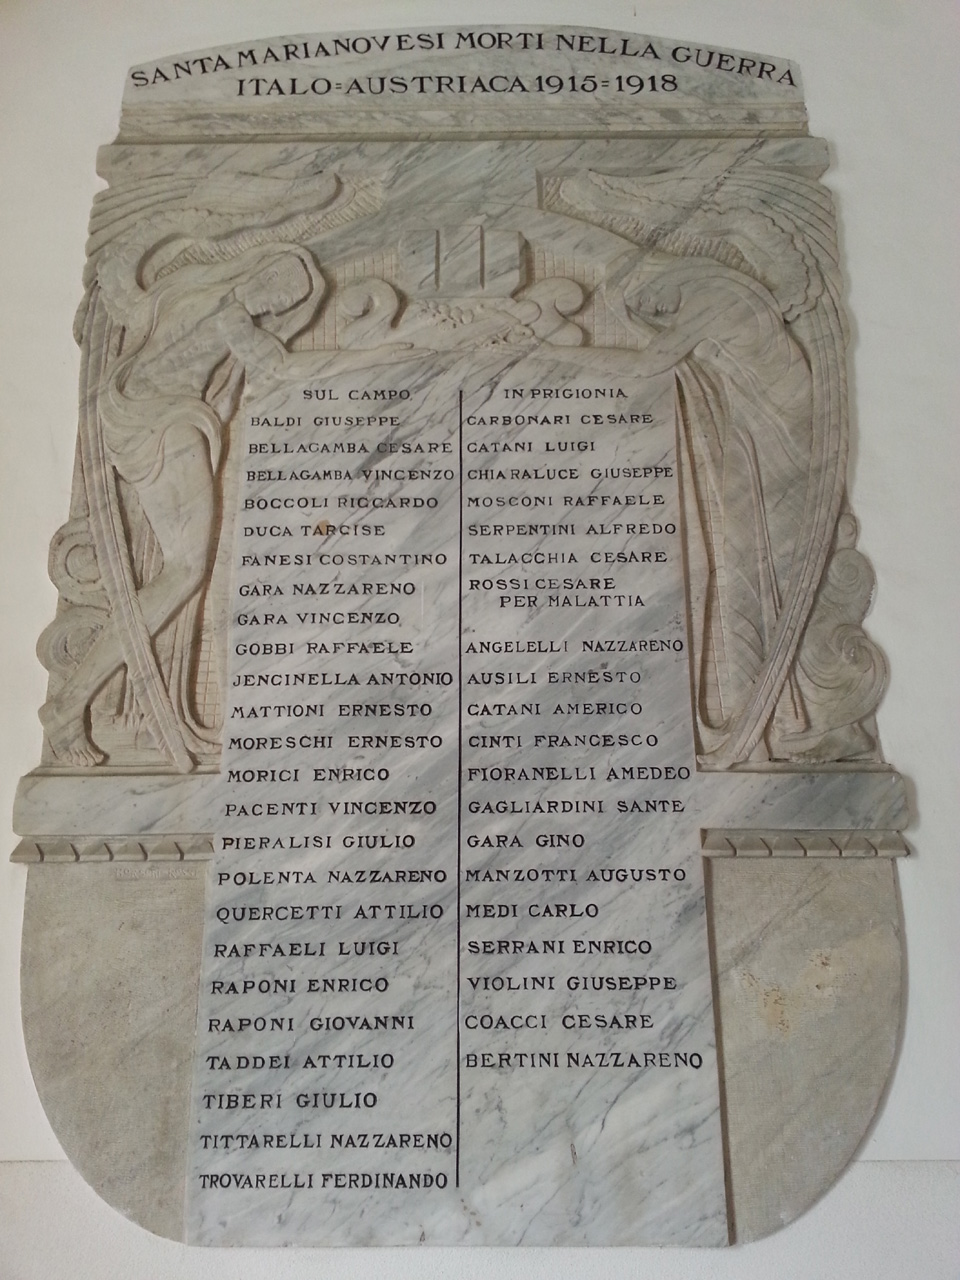 SANTAMARIANOVESI MORTI NELLA GUERRA
ITALO=AUSTRIACA 1915=1918
SUL CAMPO
BALDI GIUSEPPE
BELLAGAMBA CESARE
BELLAGAMBA VINCENZO
BOCCOLI RICCARDO
DUCA TARCISE
FANESI COSTANTINO
GARA NAZZARENO
GARA VINCENZO
GOBBI RAFFAELE
JENCINELLA ANTONIO
MATTIONI ERNESTO
MORESCHI ERNESTO
MORICI ENRICO
PACENTI VINCENZO
PIERALISI GIULIO
POLENTA NAZZARENO
QUERCETTI ATTILIO
RAFFAELI LUIGI
RAPONI ENRICO
RAPONI GIOVANNI
TADDEI ATTILIO
TIBERI GIULIO
TITTARELLI NAZZARENO
TROVARELLI FERDINANDO
IN PRIGIONIA
CARBONARI CESARE
CATANI LUIGI
CHIARALUCE GIUSEPPE
MOSCONI RAFFAELE
SERPENTINI ALFREDO
TALACCHIA CESARE
ROSSI CESARE
PER MALATTIA
ANGELELLI NAZZARENO
AUSILI ERNESTO
CATANI AMERICO
CINTI FRANCESCO
FIORANELLI AMEDEO
GAGLIARDINI SANTE
GARA GINO
MANZOTTI AUGUSTO
MEDI CARLO
SERRANI ENRICO
VIOLINI GIUSEPPE
COACCI CESARE
BERTINI NAZZARENO